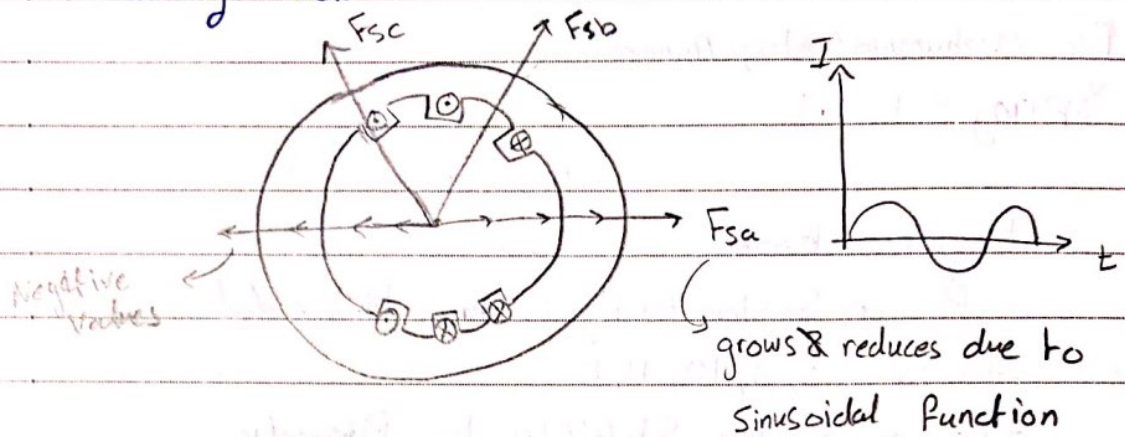 Fsc
Fsb
I
Fsa
t
Negative
values
grows & reduces due to
sinusoidal function